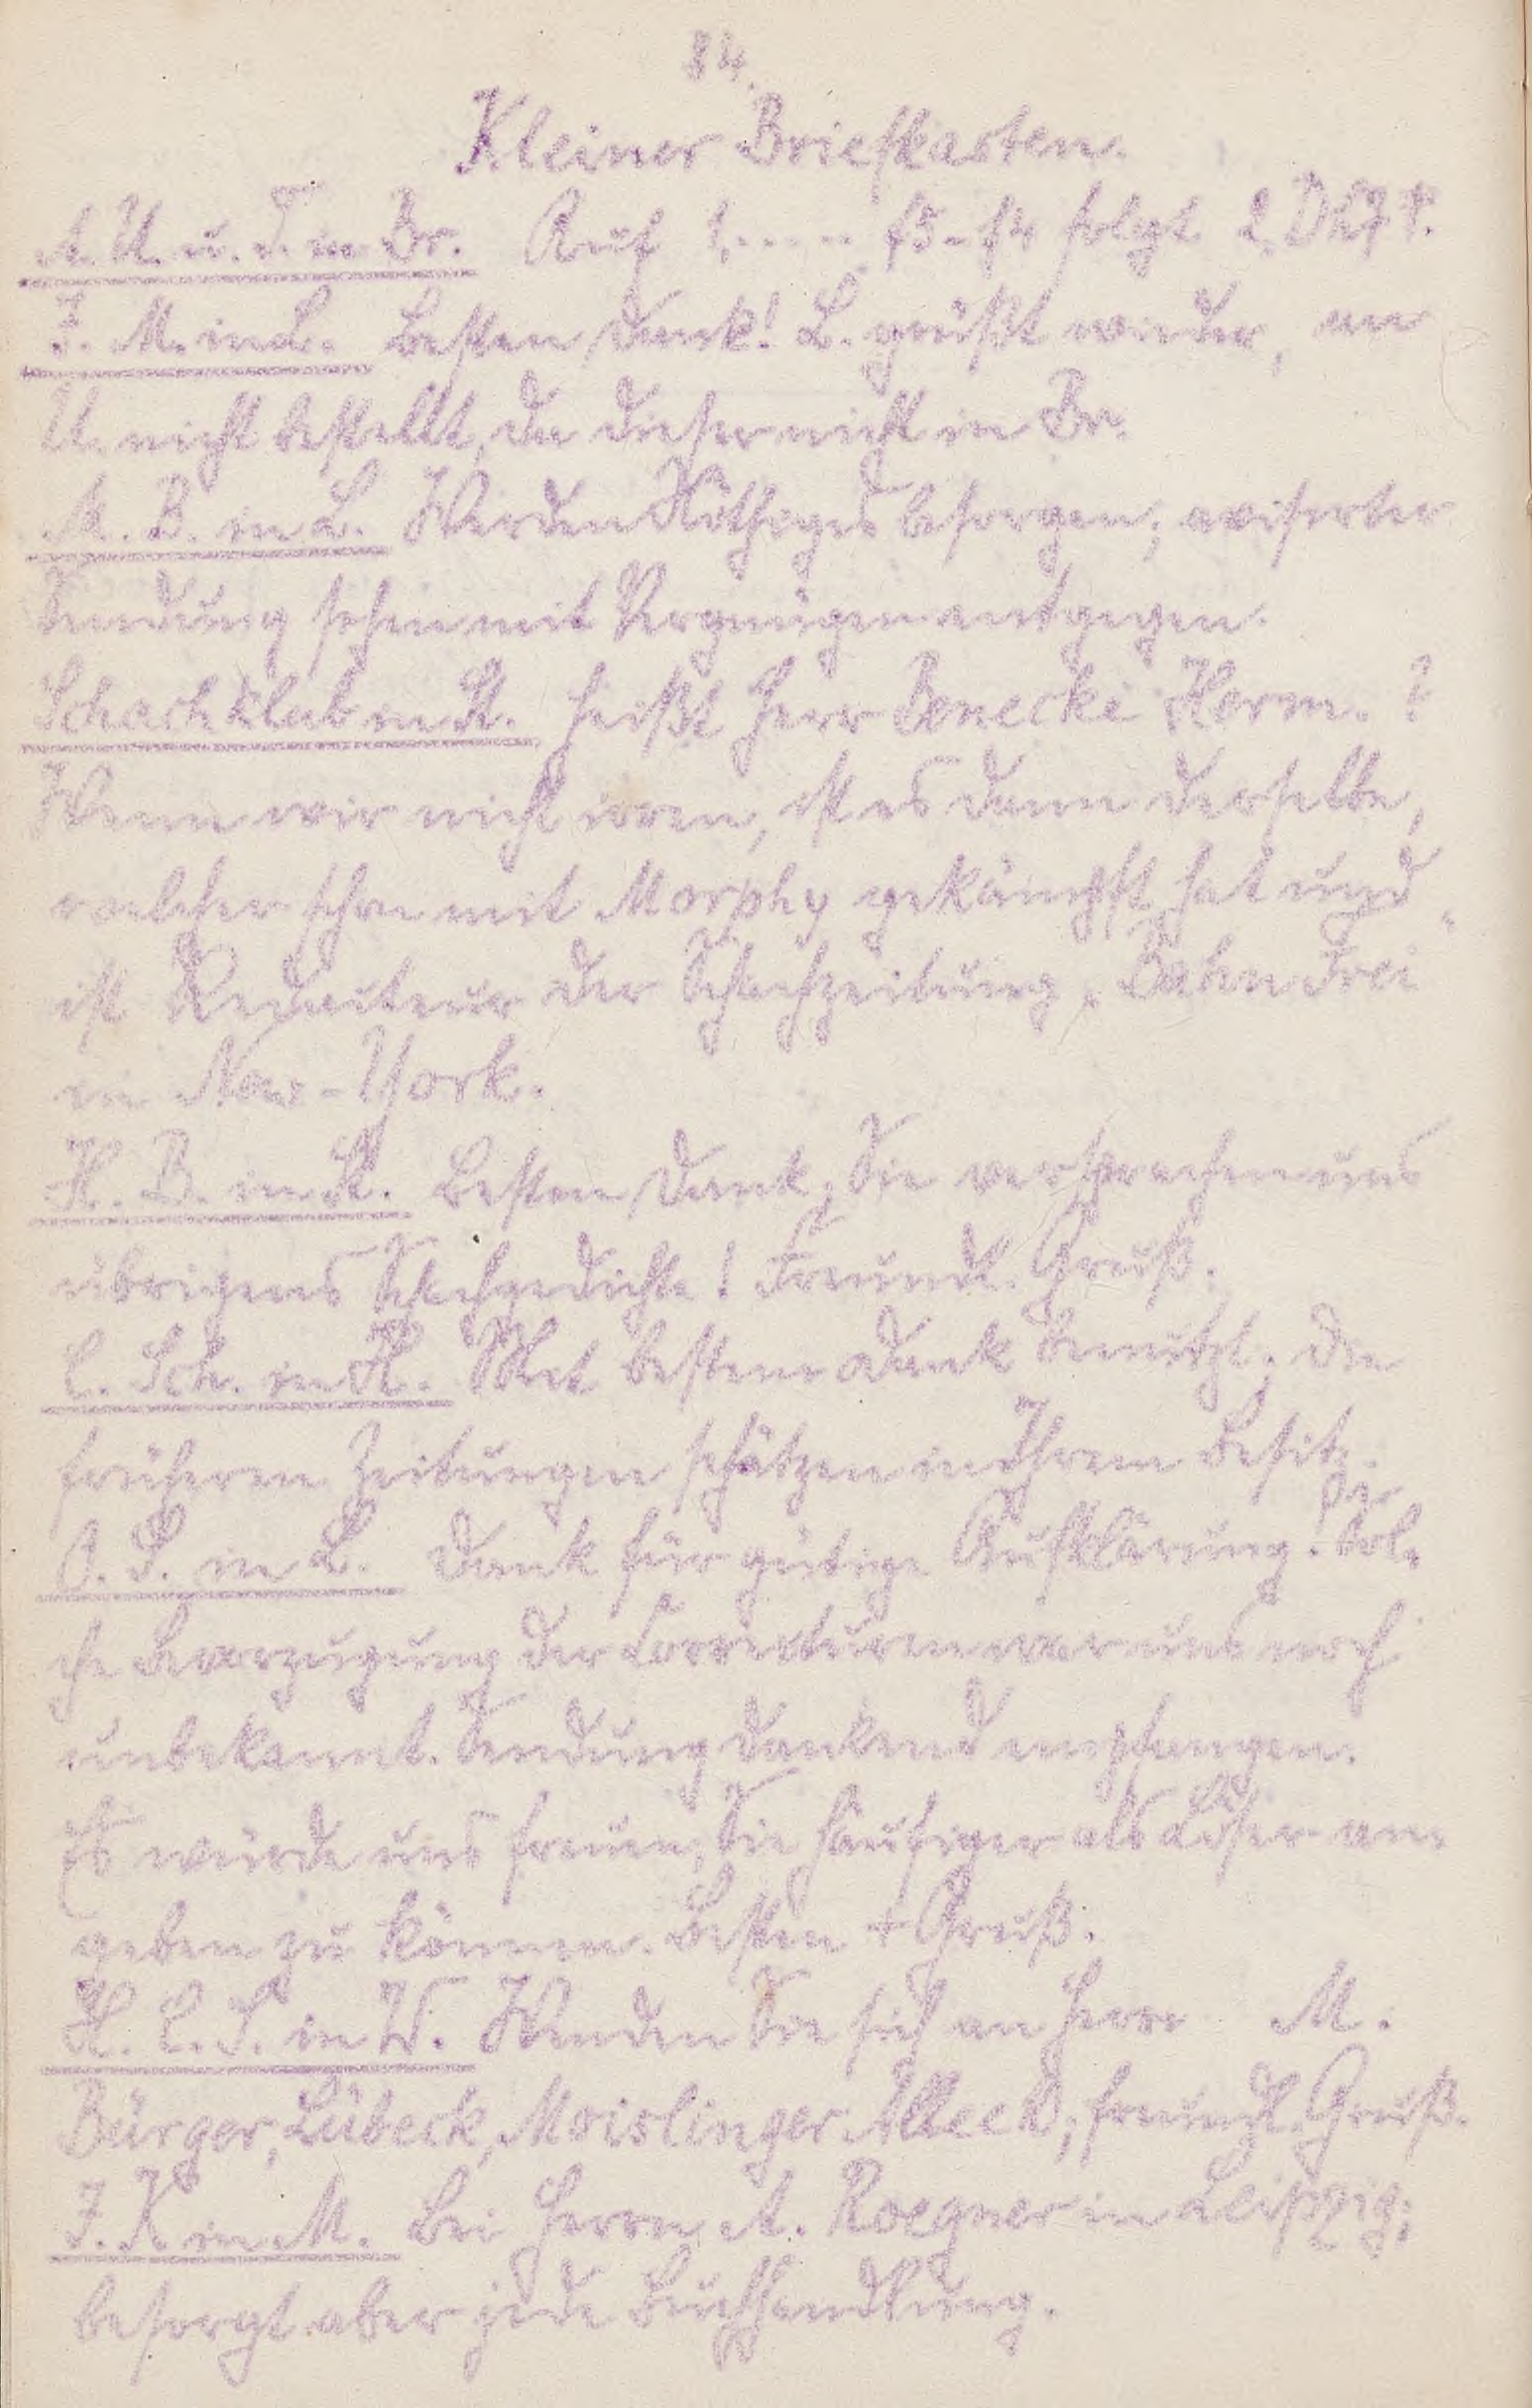 84.
Kleiner Briefkasten.
A. U. u. S. in Br. Auf 1. ..... f5-f4 folgt 2. Dh7 †.
J. M. in L. Besten Dank! L. grüßt wieder, an
U. nicht bestellt, da dieser nicht in Br.
M. B. in L. Werden Nöthiges besorgen; avisirter
Sendung sehen mit Vergnügen entgegen.
Schachklub in St. Heißt Herr Benecke Herm. ?
Wenn wir nicht irren, ist es dann derselbe,
welcher schon mit Morphy gekämpft hat und
ist Redacteur der Schachzeitung „Bahn Frei"
in New-York.
H. B. in St. Besten Dank, Sie versprachen uns
übrigens Schachgedichte! Freundl. Gruß.
C. Sch. in H. Mit bestem Dank benutzt. Die
früheren Zeitungen schätzen in Ihrem Besitz.
O. S. in L. Dank für gütige Aufklärung! Sol-
che Bevorzugung der Correcturen war uns noch
unbekannt. Sendung dankend empfangen.
Es würde uns freuen, Sie häufiger als Löser an-
geben zu können. Besten + Gruß.
H. C. S. in W. Wenden Sie sich an Herrn M.
Bürger, Lübeck, Moislinger Allee; freundl. Gruß.
J. K. in M. Bei Herrn A. Roegner in Leipzig;
besorgt aber jede Buchhandlung.